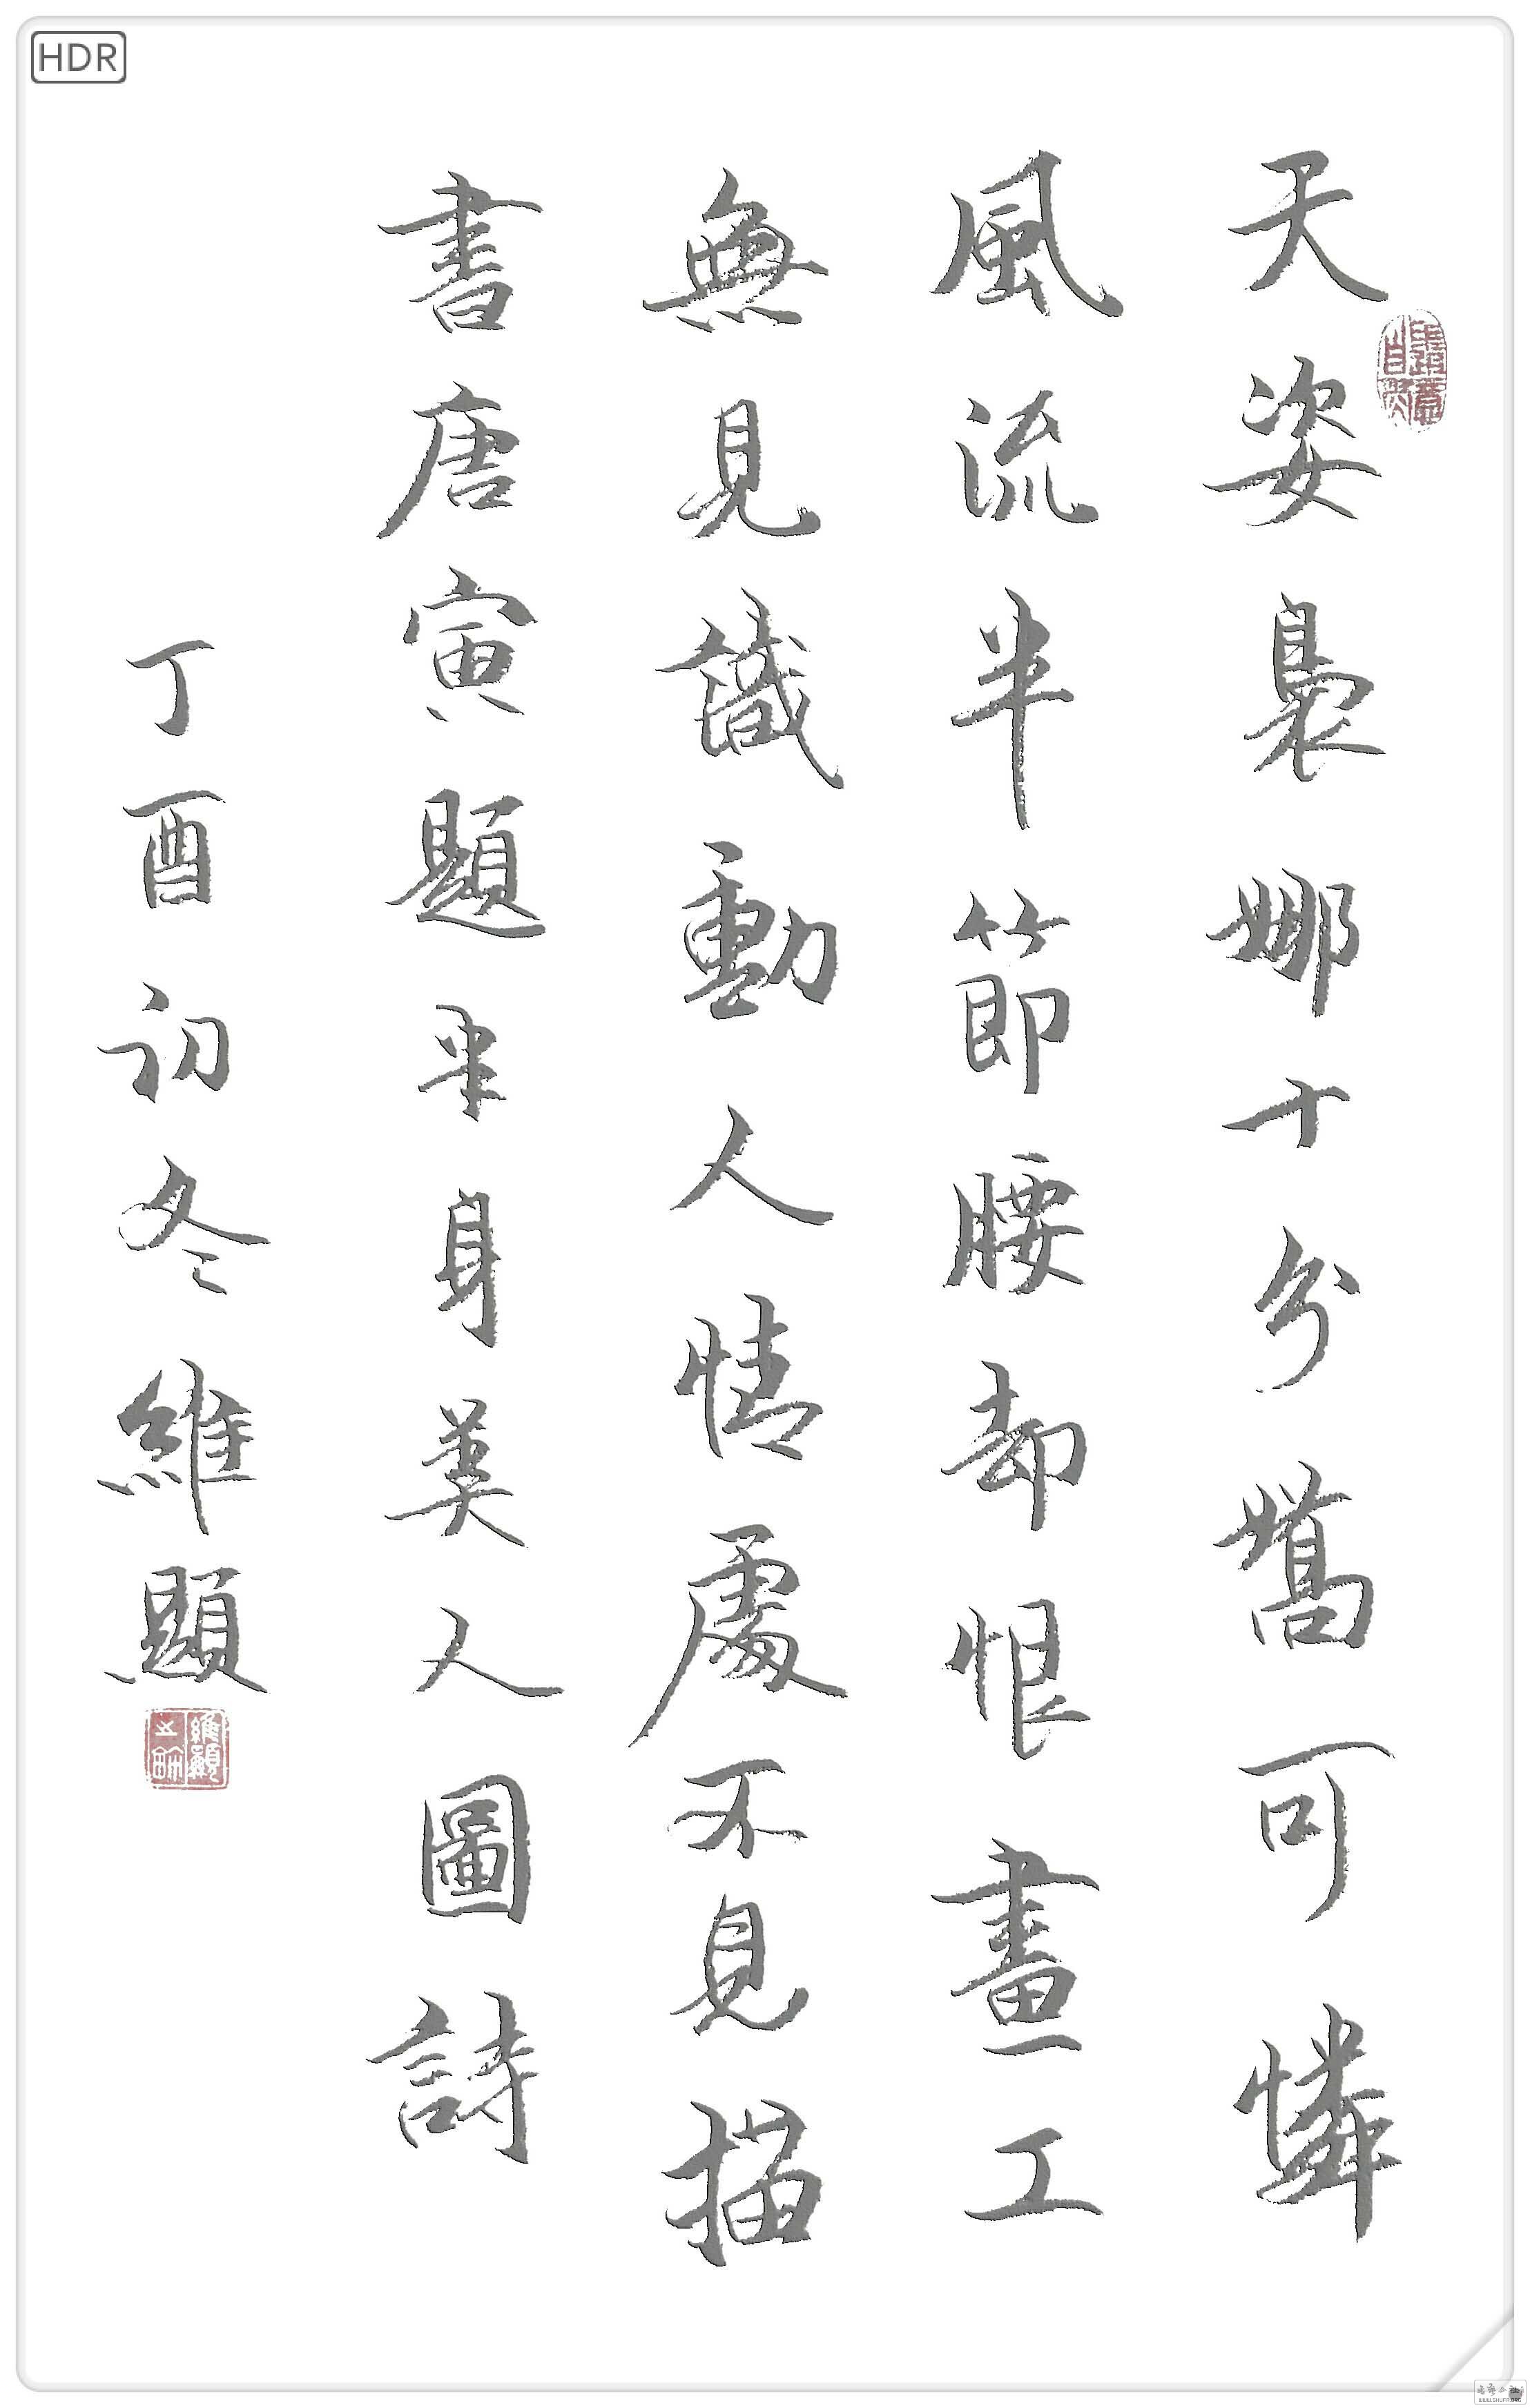 HDR
天姿裊娜十分嬌可憐
風流半節腰却恨畫工
無見識動人情處不見描
書唐寅題半身美人圖詩
丁酉初冬維顯